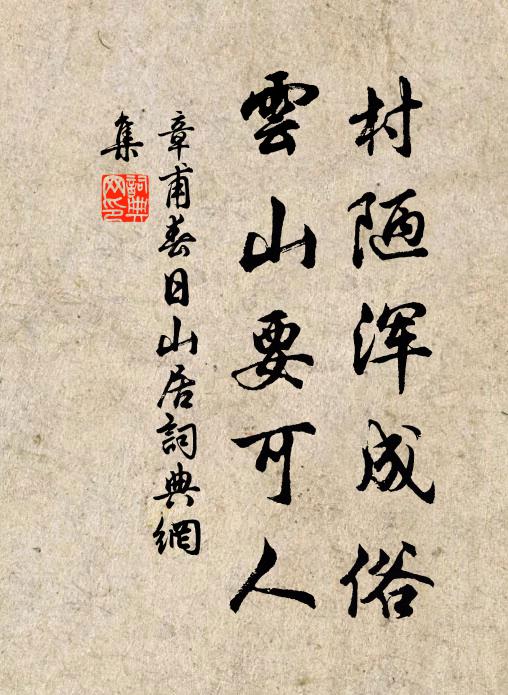 村陋浑成俗
雲山要可人
章甫春日山居詞典網
集
詞典
网印